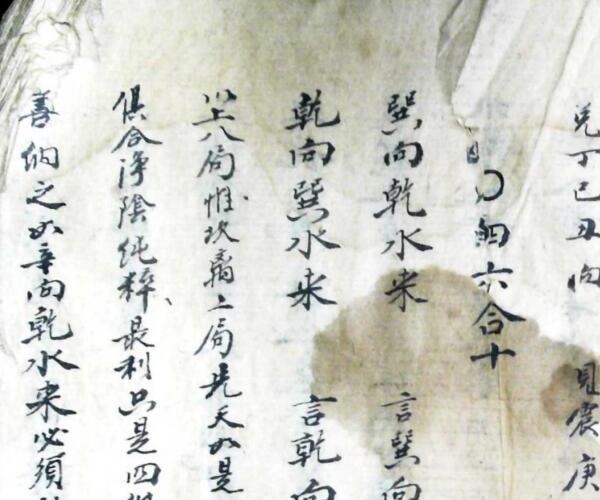 兌丁巳丑向 見震庚
四六合十
巽向乾水來 言巽向
乾向巽水來 言乾向
以上八局惟坎離二局先天如是
俱合淨陰純粹最利只是四
善納之如辛向乾水來必須